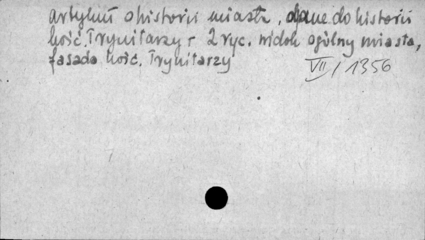 artykuł o historii miasta, dane do historii
kość. Trynitarzy r 2 ryc. widok ogólny miasta,
fasada kość. Trynitarzy
VII / 1356